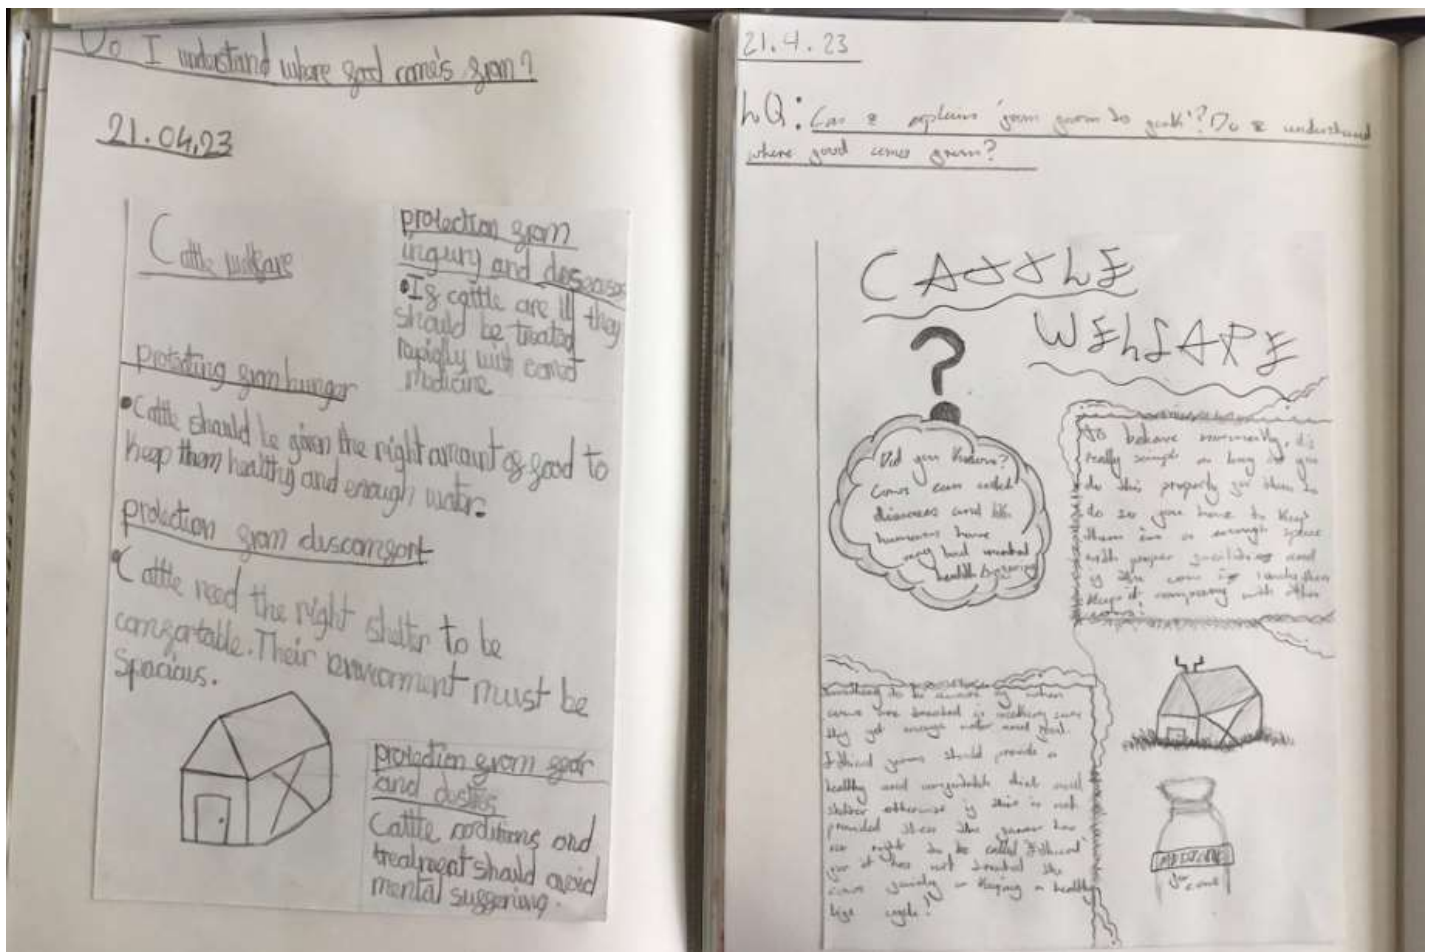 Do I understand where food come's from?
21.04.23
Cattle welfare
protection from
ingury and deseases
•If cattle are ill they
should be treated
rapidly with correct
medicine
protecting from hunger
•Cattle should be given the right amount of food to
keep them healthy and enough water.
protection from discomfort
•Cattle need the right shelter to be
comfortable. Their enviorment must be
spacious.
protection from fear
and distres
Cattle conditions and
treatment should avoid
mental suffering.
21.4.23
LQ: Can I explain 'from farm to fork'? Do I understand
where food comes from?
CATTLE
WELFARE
?
Did you know?
Cows can catch
diseases and like
humans have
very bad mental
health/suffering
To behave normally, it's
really simple as long as you
do this properly for them to
do so you have to keep
them in a enough space
with proper facilities and
if the cow is
keep it company with other
cows!
Something to be aware of when
cows are treated is making sure
they get enough water and food.
Ethical farms should provide a
healthy and comfortable diet and
shelter otherwise if this is not
provided then the farmer has
no right to be called "Ethical"
for it has not treated the
cows fairly or keeping a healthy
life cycle!
MEDICINE
for cows